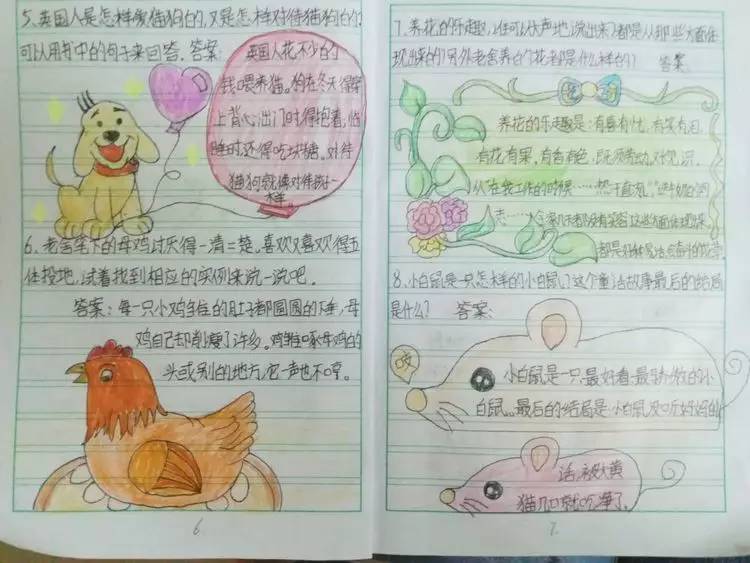 5、英国人是怎样爱猫狗的,又是怎样对待猫狗的?
可以用书中的句子来回答。答案:
英国人花不少的
钱喂养猫。狗在冬天得穿
上背心出门时得抱着,临
睡时还得吃块糖。对待
猫狗就像对待孩子一
样。
6、老舍笔下的母鸡讨厌得一清二楚。喜欢又喜欢得五
体投地,试着找到相应的实例来说一说吧。
答案:每一只小鸡雏的肚子都圆圆的下垂,母
鸡自己却削瘦了许多。鸡雏啄母鸡的
头或别的地方,它一声也不哼。
6
7、养花的乐趣,谁可以大声地说出来?都是从那些方面体
现出来的?另外老舍养的花都是什么样的? 答案:
养花的乐趣是:有喜有忧,有笑有泪,
有花有果,有香有色,既须劳动,又长见识。
从“在我工作的时候……然
去……
都是好种易活
8、小白鼠是一只怎样的小白鼠?这个童话故事最后的结局
是什么? 答案:
吱
小白鼠是一只最好看、最骄傲的小
白鼠。最后的结局是:小白鼠没听好妈的
话,被大黄
猫几口就吃净了。
7.